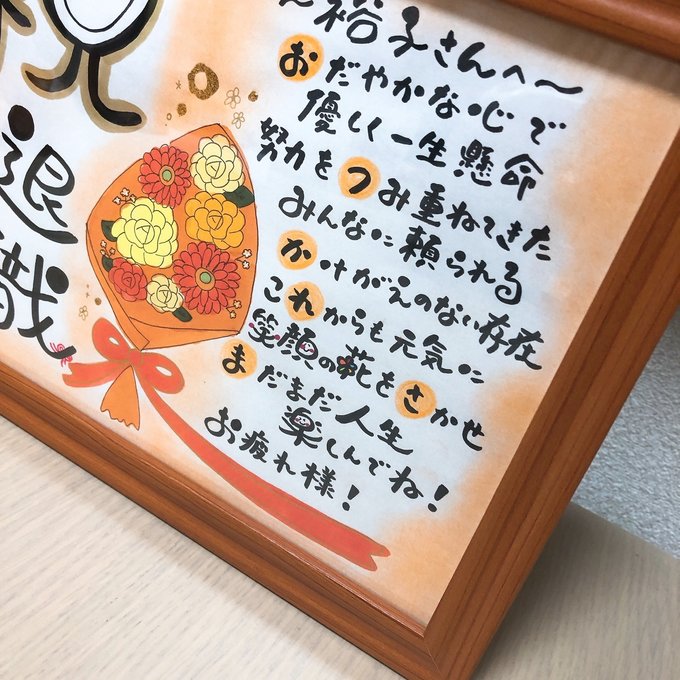 祝
退職
～裕子さんへ～
おだやかな心で
優しく一生懸命
努力をつみ重ねてきた
みんなに頼られる
かけがえのない存在
これからも元気に
笑顔の花をさかせ
まだまだ人生
楽しんでね！
お疲れ様！